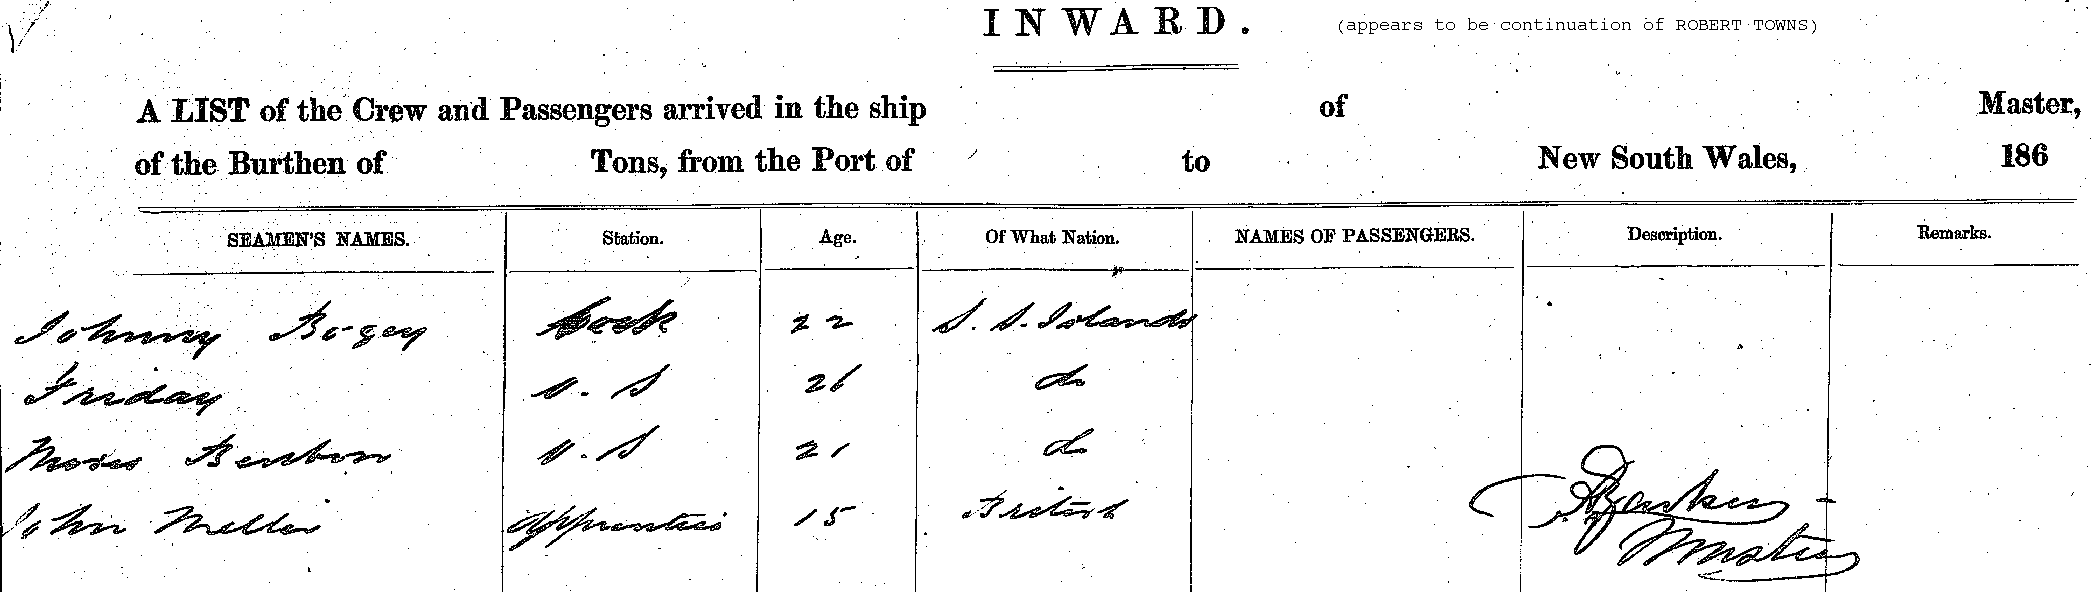 INWARD. (appears to be continuation of ROBERT TOWNS)
A LIST of the Crew and Passengers arrived in the ship of Master,
of the Burthen of Tons, from the Port of to New South Wales, 186
SEAMEN'S NAMES. Station. Age. Of What Nation. NAMES OF PASSENGERS. Description. Remarks.
Johnny Bogey Cook 22 S. S. Islands
Friday O. S 26 do
Moses O. S 21 do
John Apprentice 15 British
Master